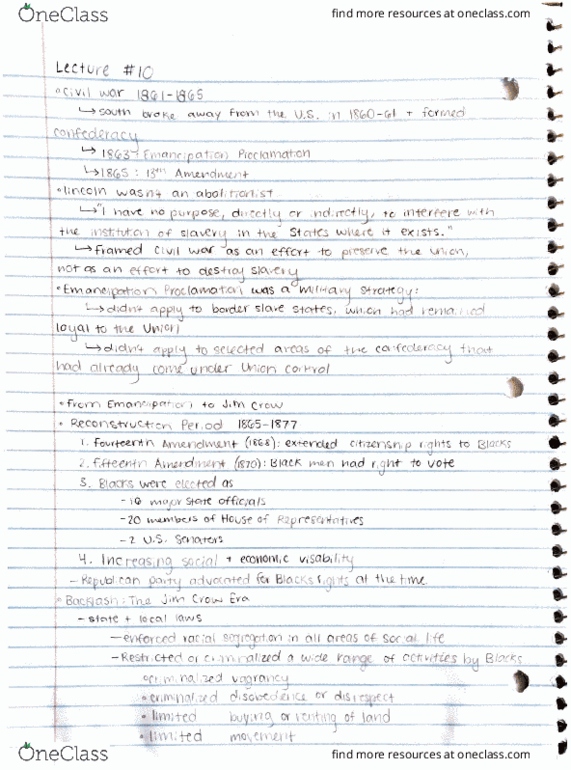 OneClass find more resources at oneclass.com
Lecture #10
• Civil war 1861-1865
↳ south broke away from the U.S. in 1860-61 + formed
confederacy
↳ 1863: Emancipation Proclamation
↳ 1865: 13th Amendment
• lincoln wasn't an abolitionist
↳ "I have no purpose, directly or indirectly, to interfere with
the institution of slavery in the States where it exists."
↳ framed civil war as an effort to preserve the union,
not as an effort to destroy slavery
• Emancipation Proclamation was a military strategy:
↳ didn't apply to border slave states, which had remained
loyal to the Union
↳ didn't apply to selected areas of the confederacy that
had already come under Union control
• From Emancipation to Jim Crow
• Reconstruction Period 1865-1877
1. fourteenth Amendment (1868): extended citizenship rights to Blacks
2. fifteenth Amendment (1870): Black men had right to vote
3. Blacks were elected as
- major state officials
- 20 members of House of Representatives
- 2 U.S. Senators
4. Increasing social + economic visability
- Republican party advocated for Blacks rights at the time
• Backlash: The Jim Crow Era
- state + local laws
- enforced racial segregation in all areas of social life
- Restricted or criminalized a wide range of activities by Blacks
• criminalized vagrancy
• criminalized disobedence or disrespect
• limited buying or renting of land
• limited movement
OneClass find more resources at oneclass.com